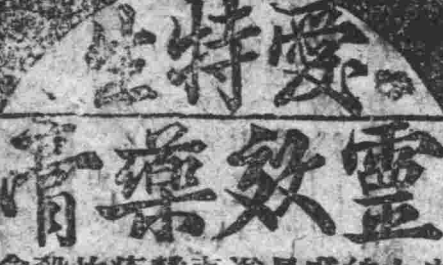 愛特生
靈效藥膏